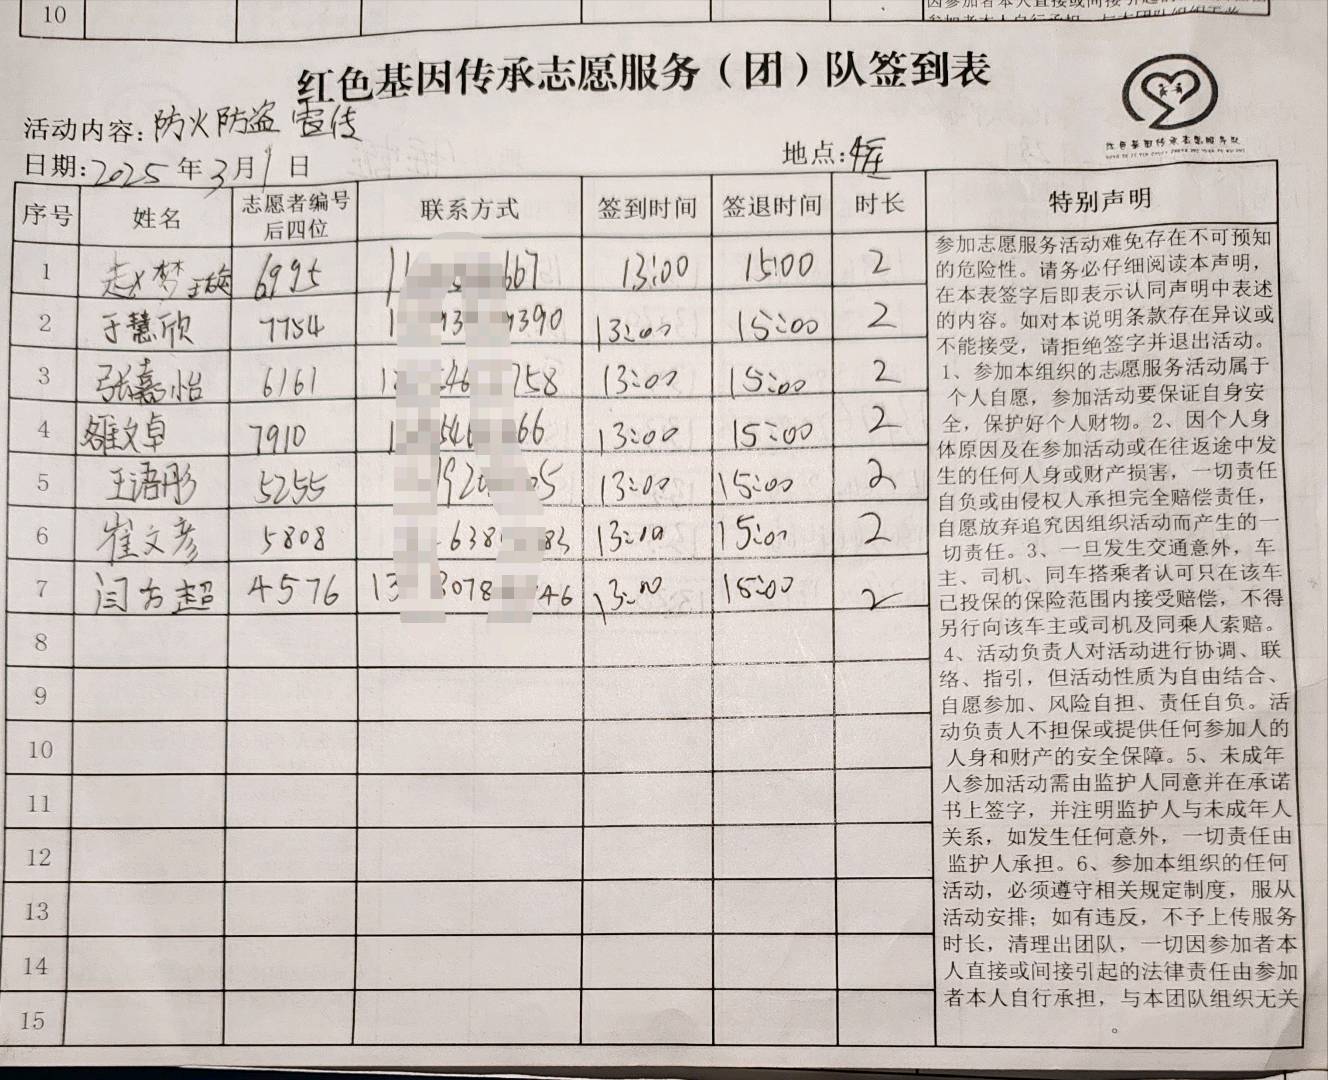 10
红色基因传承志愿服务（团）队签到表
活动内容：防火防盗宣传
日期：2025年3月1日
地点：
序号 姓名 志愿者编号后四位 联系方式 签到时间 签退时间 时长 特别声明
1 赵梦 6995 1 667 13:00 15:00 2
2 于慧欣 7754 1 390 13:00 15:00 2
3 张嘉怡 6161 1 46 758 13:00 15:00 2
4 文卓 7910 1 546 66 13:00 15:00 2
5 王语彤 5255 920 05 13:00 15:00 2
6 崔文彦 5808 638 83 13:00 15:00 2
7 闫方超 4576 13 3078 46 13:00 15:00 2
8
9
10
11
12
13
14
15
参加志愿服务活动难免存在不可预知
的危险性。请务必仔细阅读本声明，
在本表签字后即表示认同声明中表述
的内容。如对本说明条款存在异议或
不能接受，请拒绝签字并退出活动。
1、参加本组织的志愿服务活动属于
个人自愿，参加活动要保证自身安
全，保护好个人财物。2、因个人身
体原因及在参加活动或在往返途中发
生的任何人身或财产损害，一切责任
自负或由侵权人承担完全赔偿责任，
自愿放弃追究因组织活动而产生的一
切责任。3、一旦发生交通意外，车
主、司机、同车搭乘者认可只在该车
已投保的保险范围内接受赔偿，不得
另行向该车主或司机及同乘人索赔。
4、活动负责人对活动进行协调、联
络、指引，但活动性质为自由结合、
自愿参加、风险自担、责任自负。活
动负责人不担保或提供任何参加人的
人身和财产的安全保障。5、未成年
人参加活动需由监护人同意并在承诺
书上签字，并注明监护人与未成年人
关系，如发生任何意外，一切责任由
监护人承担。6、参加本组织的任何
活动，必须遵守相关规定制度，服从
活动安排；如有违反，不予上传服务
时长，清理出团队，一切因参加者本
人直接或间接引起的法律责任由参加
者本人自行承担，与本团队组织无关
。